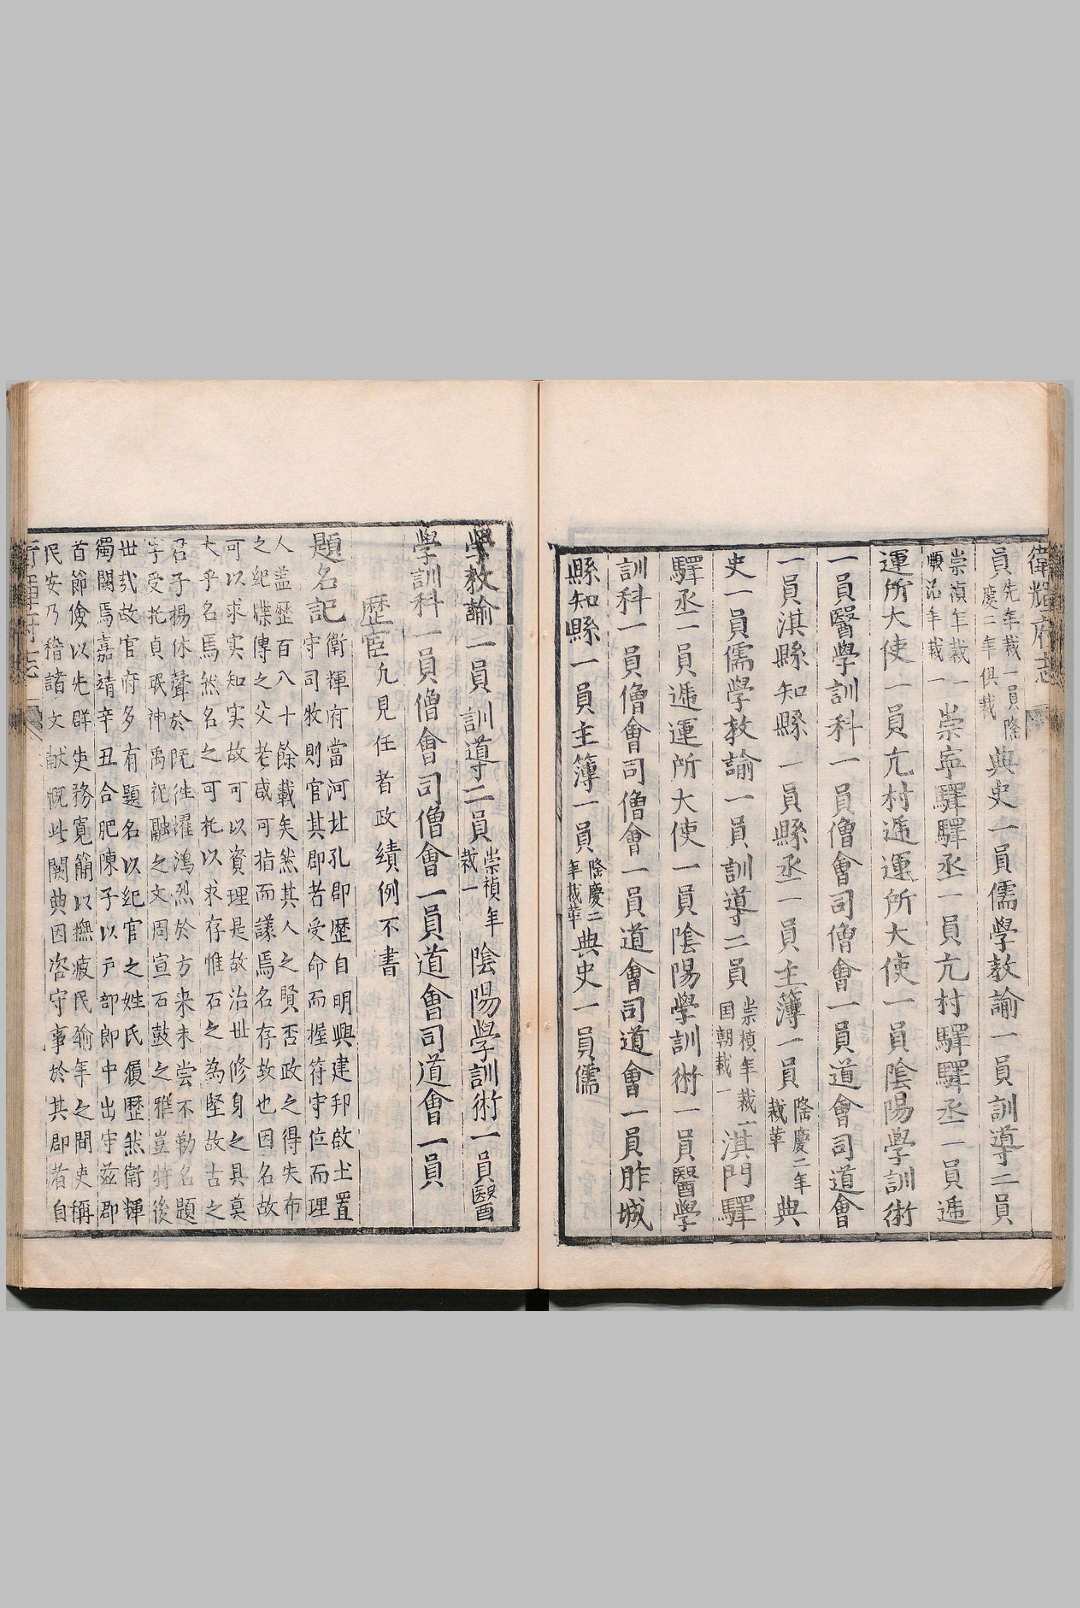 衛輝府志
員先年裁一員隆慶二年俱裁典史一員儒學教諭一員訓導二員
崇禎年裁一順治年裁一崇寧驛驛丞一員亢村驛驛丞一員遞
運所大使一員亢村遞運所大使一員陰陽學訓術
一員醫學訓科一員僧會司僧會一員道會司道會
一員淇縣知縣一員縣丞一員主簿一員隆慶二年裁革典
史一員儒學教諭一員訓導二員崇禎年裁一国朝裁一淇門驛
驛丞一員遞運所大使一員陰陽學訓術一員醫學
訓科一員僧會司僧會一員道會司道會一員胙城
縣知縣一員主簿一員隆慶二年裁革典史一員儒
學教諭一員訓導二員崇禎年裁一陰陽學訓術一員醫
學訓科一員僧會司僧會一員道會司道會一員
歷宦凡見任者政績例不書
題名記衛輝府當河北孔郡歷自明興建邦啟土置
守司牧則官其郡者受命而握符守位而理
人盖歷百八十餘載矣然其人之賢否政之得失布
之紀牒傳之父老咸可指而議焉名存故也因名故
可以求實知實故可以資理是故治世修身之具莫
大乎名焉然名之可托以求存惟石之為堅故古之
君子揚休聲於既徃濯鴻烈於方来未尝不勒名題
字受托貞珉神禹祀融之文周宣石鼓之雅豈特後
世㢤故官府多有題名以纪官之姓氏履歷然衛輝
獨闕焉嘉靖辛丑合肥陳子以戸部郎中出守兹郡
首節儉以先群吏務寬簡以撫疲民逾年之間吏稱
民安乃稽諸文献慨此闕典因咨守事於其郡者自
衛輝府志